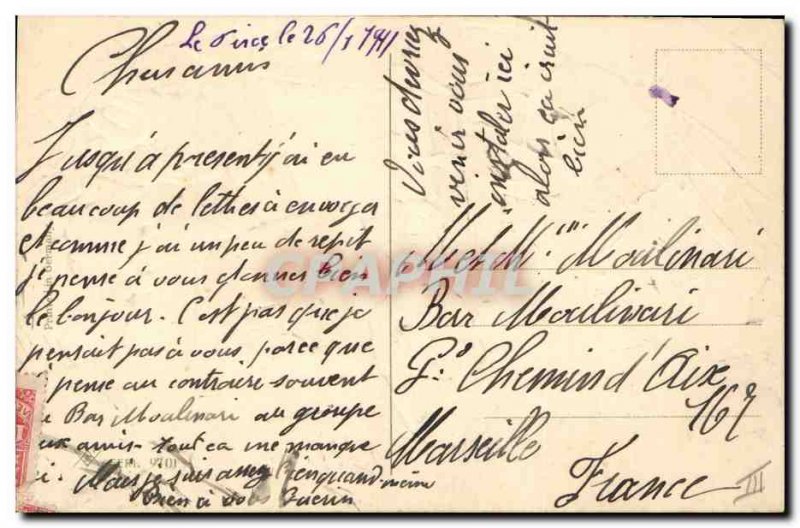 le 26/1 1911
Chers amis
Jusqu'à present j'ai eu
beaucoup de lettres à envoyer
et comme j'ai un peu de répit
je pense à vous donner bien
le bonjour. C'est pas que je
pensait pas à vous, parce que
pense au contraire souvent
Bar Moulinari au groupe
amis tout ca me manque
i. Mais je suis quand même
Bien à vous Guerin
Vous devriez
venir vous
installer ici
alors ca irait
bien
M et Mme Moulinari
Bar Moulinari
Gd Chemin d'Aix
167
Marseille
France
III
CPAPHIL